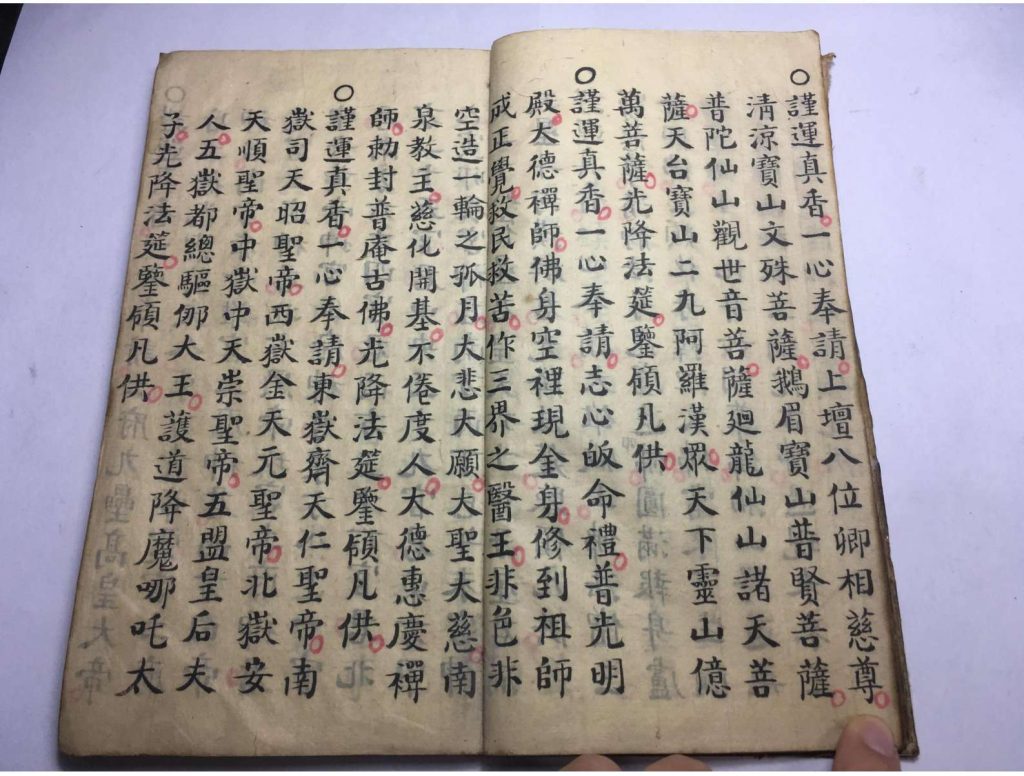 謹運真香一心奉請上壇八位卿相慈尊
清涼寶山文殊菩薩鵝眉寶山普賢菩薩
普陀仙山觀世音菩薩廻龍仙山諸天菩
薩天台寶山二九阿羅漢眾天下靈山億
萬菩薩光降法筵鑒領凡供
謹運真香一心奉請志心皈命禮普光明
殿大德禪師佛身空裡現金身修到祖師
成正覺救民救苦作三界之醫王非色非
空造一輪之孤月大悲大願大聖大慈南
泉教主慈化開基不倦度人大德惠慶禪
師勅封普庵古佛光降法筵鑒領凡供
謹運真香一心奉請東嶽齊天仁聖帝南
嶽司天昭聖帝西嶽金天元聖帝北嶽安
天順聖帝中嶽中天崇聖帝五盟皇后夫
人五嶽都總驅邪大王護道降魔哪吒太
子光降法筵鑒領凡供